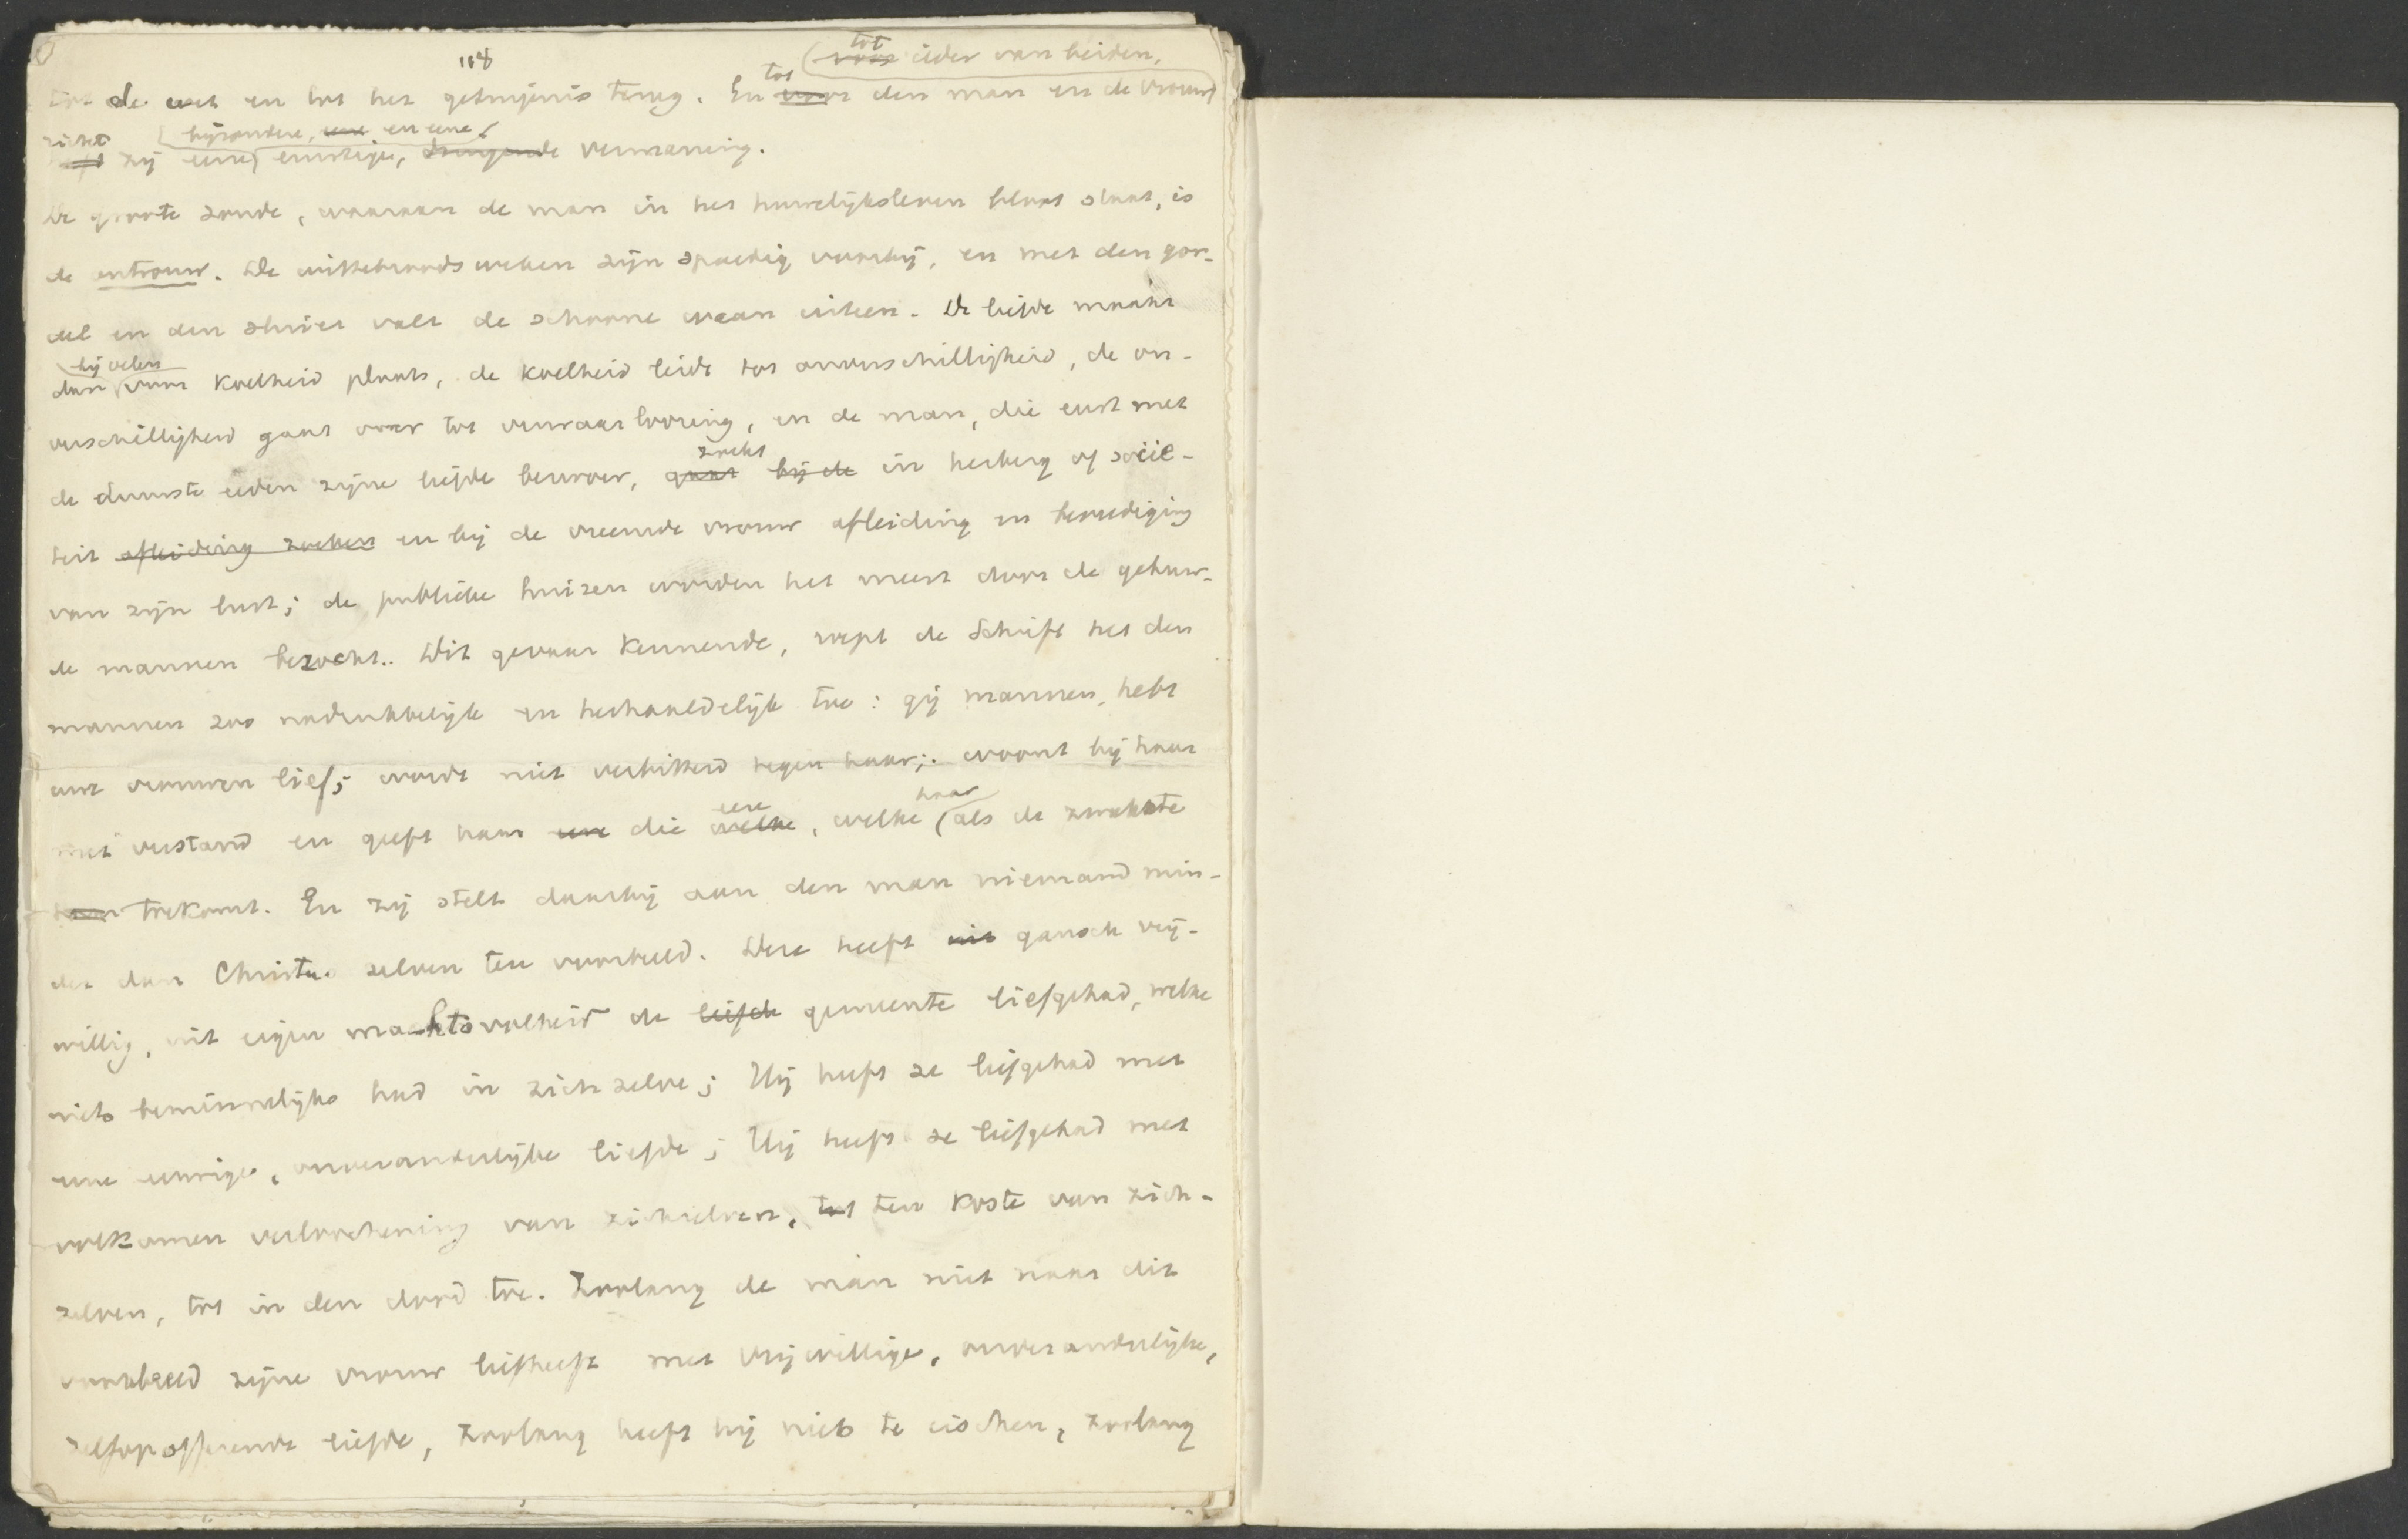 118
tot ieder van beiden,
tot de wet en tot het getuigenis terug. En tot den man en de vrouw,
richt zij eene bijzondere, en eene ernstige, dringende vermaning.
De groote zonde, waaraan de man in het huwelijksleven bloot staat, is
de ontrouw. De wittebroodsweken zijn spoedig voorbij, en met den gor-
del en den sluier valt de schoone waan uiteen. De liefde maakt
dan bij velen voor koelheid plaats, de koelheid leidt tot onverschilligheid, de on-
verschilligheid gaat over tot verwaarloozing, en de man, die eerst met
de duurste eeden zijne liefde bezwoer, gaat bij de zoekt in herberg of socië-
teit afleiding zoeken en bij de vreemde vrouw afleiding en bevrediging
van zijn lust; de publieke huizen worden het meest door de gehuw-
de mannen bezocht. Dit gevaar kennende, roept de Schrift het den
mannen zoo nadrukkelijk en herhaaldelijk toe: gij mannen, hebt
uwe vrouwen lief; wordt niet verbitterd tegen haar; woont bij haar
met verstand en geeft haar eere die welke eere, welke haar als de zwakste
toekomt. En zij stelt daarbij aan den man niemand min-
der dan Christus zelven ten voorbeeld. Deze heeft uit gansch vrij-
willig, uit eigen machtsvolheid de liefde gemeente liefgehad, welke
niets beminnelijks had in zich zelve; Hij heeft ze liefgehad met
eene eeuwige, onveranderlijke liefde; Hij heeft ze liefgehad met
volkomen verloochening van zichzelven, tot ten koste van zich-
zelven, tot in den dood toe. Zoolang de man niet naar dit
voorbeeld zijne vrouw liefheeft met vrijwillige, onveranderlijke,
zelfopofferende liefde, zoolang heeft hij niets te eischen, zoolang